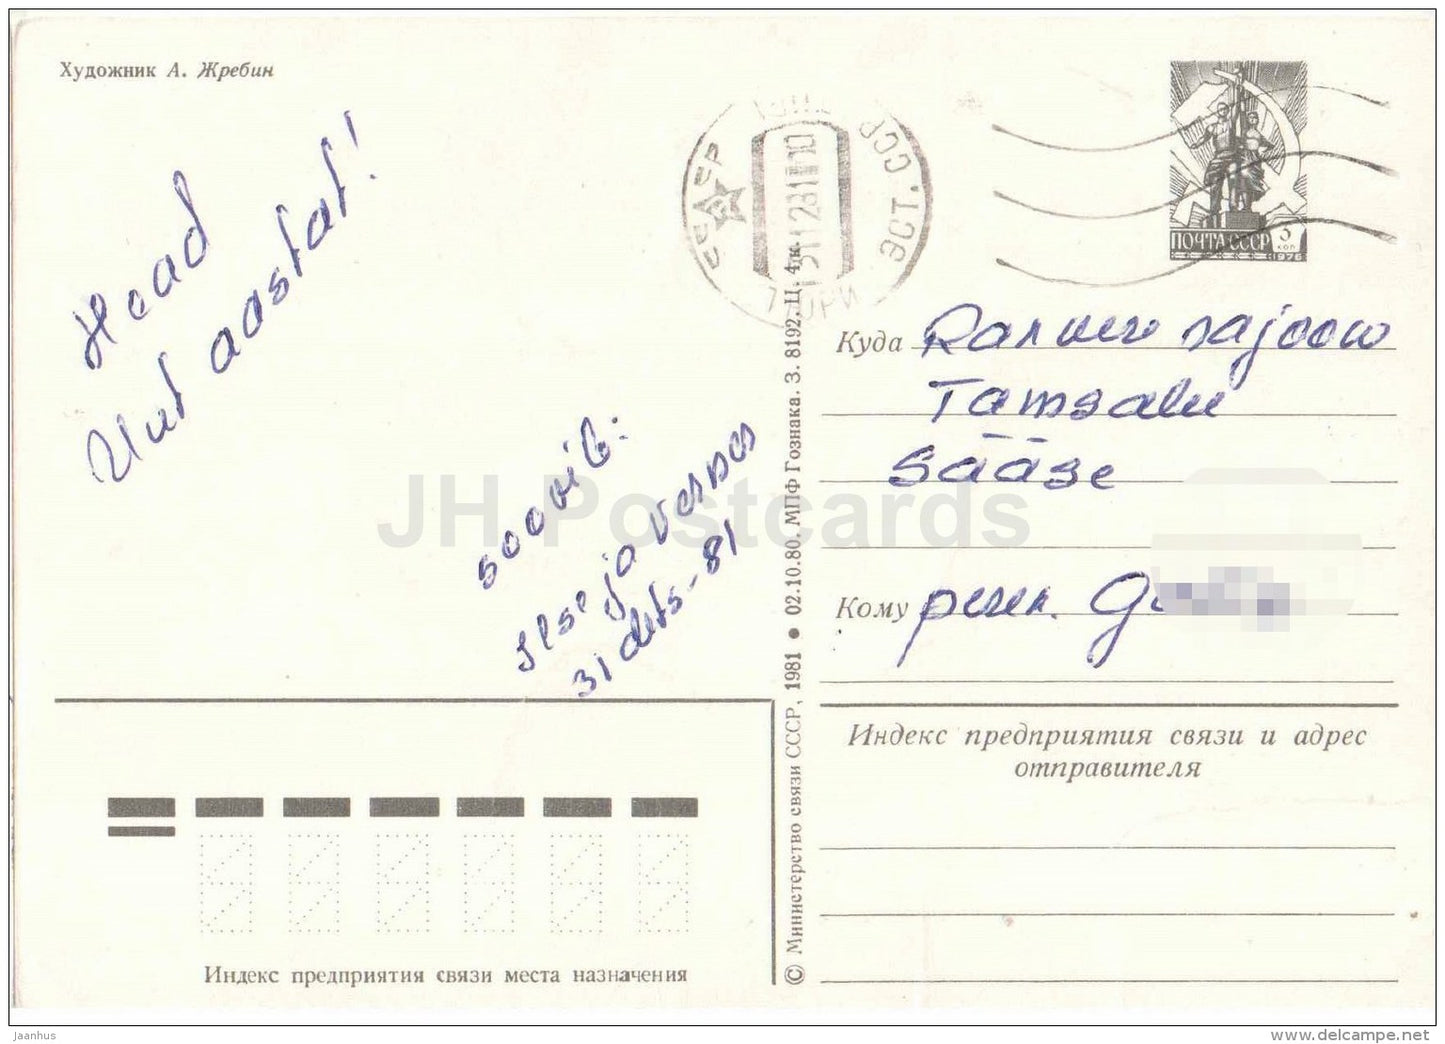 Художник А. Жребин
Head
Uut aastat!
soovib:
Ilse ja Vesna
31 dets-81
СССР
ЭСТ. ССР
311281 10
ТЮРИ
TÜRI
ПОЧТА СССР 3 коп
1976
Куда Rakvere rajoon
Tamsalu
Sääse
Кому peren. G
Индекс предприятия связи и адрес
отправителя
© Министерство связи СССР, 1981 ● 02.10.80. МПФ Гознака. З. 8192. Ц. 4 к.
Индекс предприятия связи места назначения
JH Postcards
jaanhus
delcampe.net